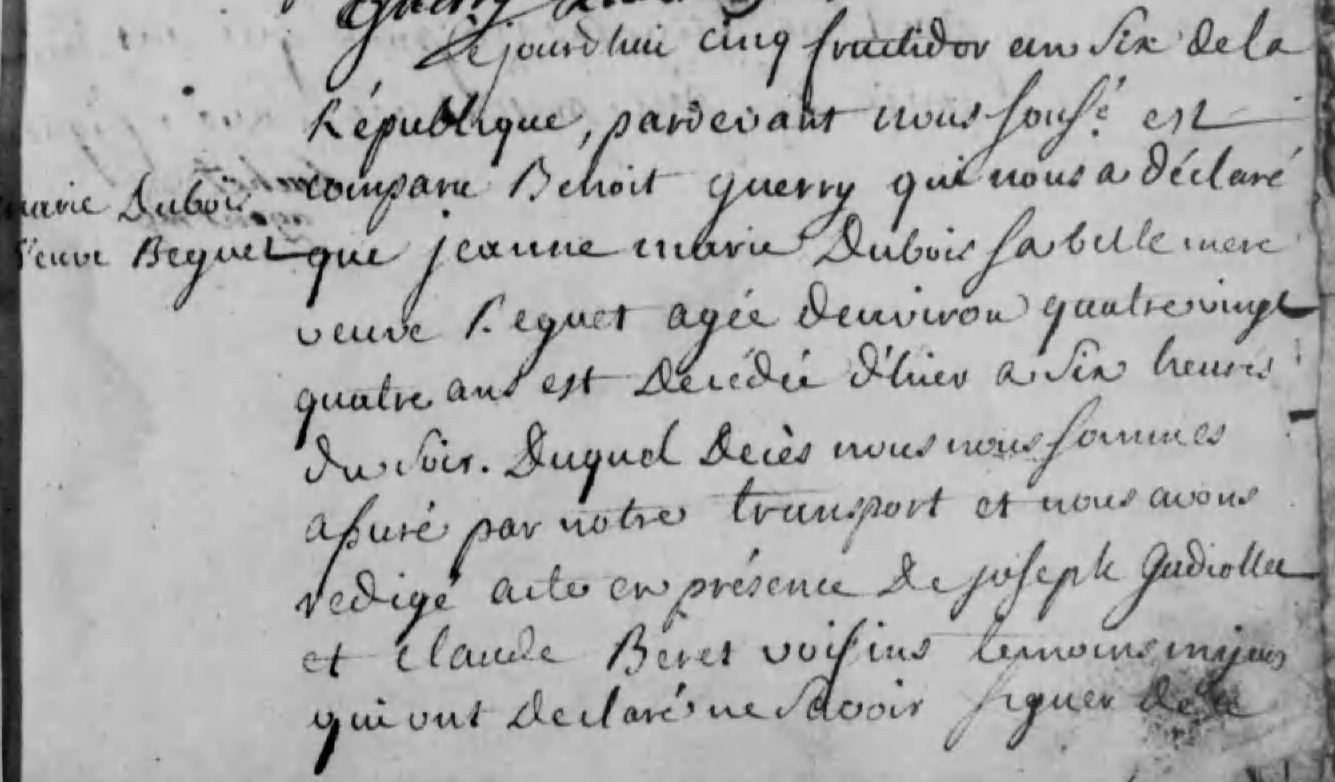 Guerry
Cejourdhui cinq fructidor an Six de la
République, pardevant nous sousé est
marie Dubois
comparu Benoit guerry qui nous a déclaré
veuve Beguet
que jeanne marie Dubois sa belle mere
veuve Beguet agée denviron quatrevingt
quatre ans est decédée d'hier a Six heures
du Soir. Duquel decès nous nous sommes
assuré par notre transport et nous avons
redigé acte en présence de joseph Gudiollet
et Claude Beret voisins temoins majeurs
qui ont declaré ne Savoir signer de ce